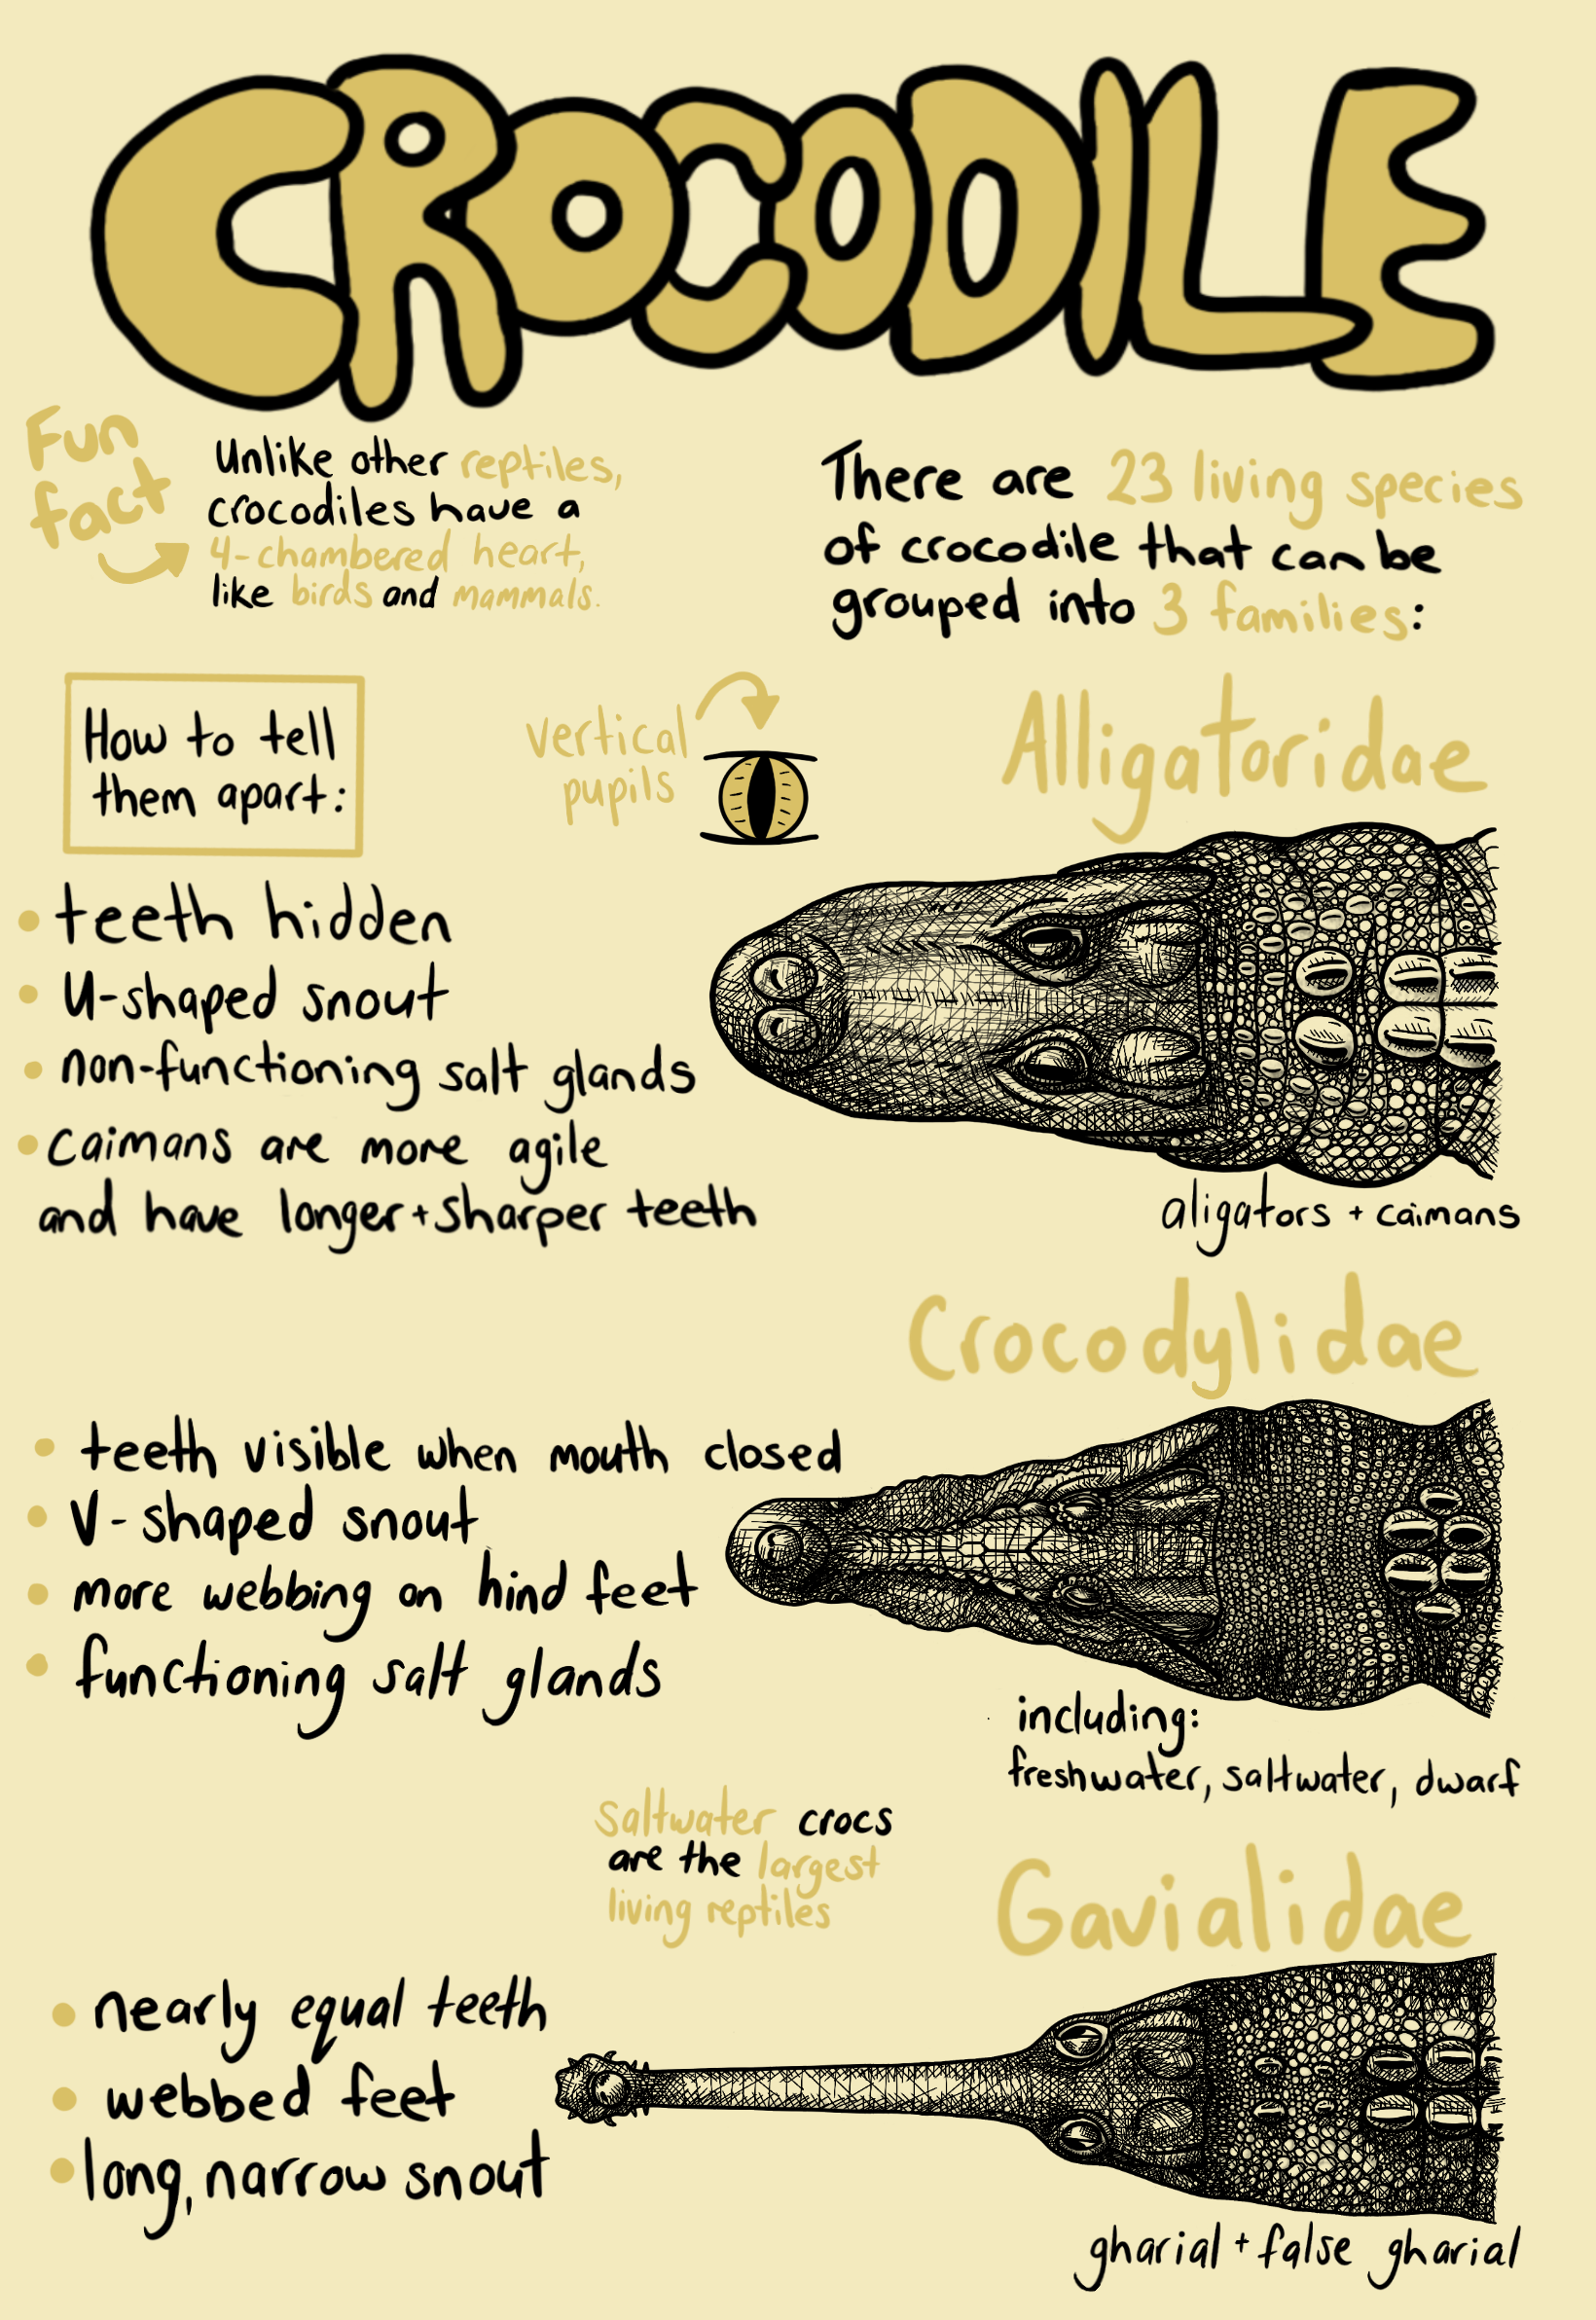 CROCODILE
Fun
fact
Unlike other reptiles,
crocodiles have a
4-chambered heart,
like birds and mammals.
There are 23 living species
of crocodile that can be
grouped into 3 families:
How to tell
them apart:
vertical
pupils
Alligatoridae
• teeth hidden
• U-shaped snout
• non-functioning salt glands
• caimans are more agile
and have longer + sharper teeth
aligators + caimans
Crocodylidae
• teeth visible when mouth closed
• V-shaped snout
• more webbing on hind feet
• functioning salt glands
including:
freshwater, saltwater, dwarf
saltwater crocs
are the largest
living reptiles
Gavialidae
• nearly equal teeth
• webbed feet
• long, narrow snout
gharial + false gharial